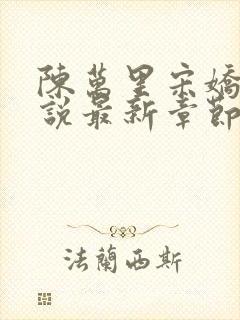 陳萬里宋嬌
說最新章節
法蘭西斯